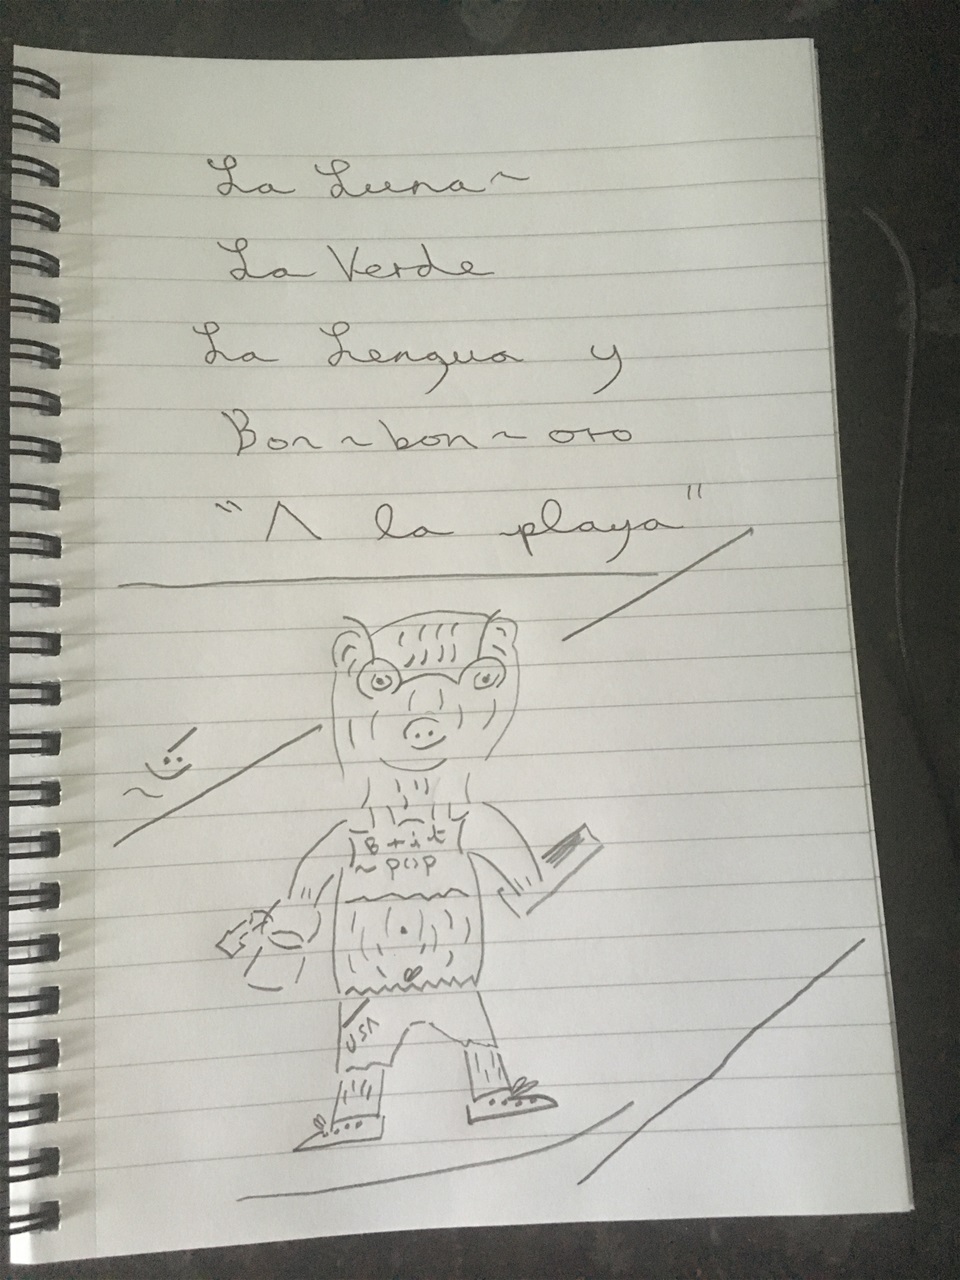 La Luna~
La Verde
La Lengua y
Bon~bon~oro
"A la playa"
B+it
~ pop
USA